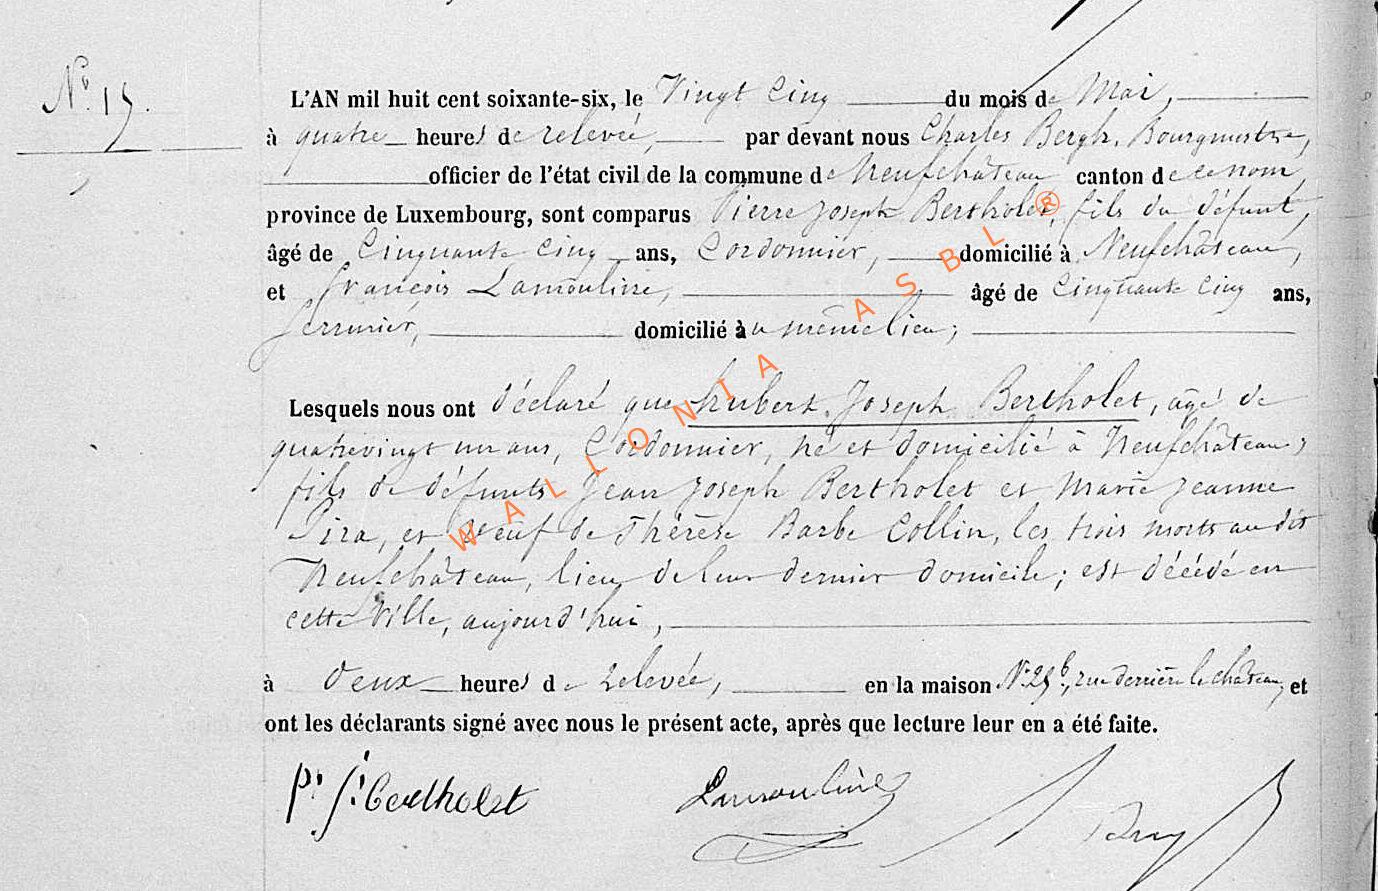 N° 15.
L'AN mil huit cent soixante-six, le Vingt Cinq du mois de Mai,
à quatre heures de relevée, par devant nous Charles Bergh, Bourgmestre,
officier de l'état civil de la commune de Neufchâteau canton de ce nom,
province de Luxembourg, sont comparus Pierre Joseph Bertholet, fils du défunt,
âgé de Cinquante Cinq ans, Cordonnier, domicilié à Neufchâteau,
et François Lamouline, âgé de Cinquante Cinq ans,
Serrurier, domicilié au même lieu;
Lesquels nous ont déclaré que hubert Joseph Bertholet, âgé de
quatrevingt un ans, Cordonnier, né et domicilié à Neufchâteau,
fils de défunts Jean Joseph Bertholet et Marie Jeanne
Pira, et Veuf de Thérèse Barbe Collin, les trois morts au dit
Neufchâteau, lieu de leur dernier domicile; est décédé en
cette Ville, aujourd'hui,
à deux heures de relevée, en la maison N° 25 b, rue derrière le château, et
ont les déclarants signé avec nous le présent acte, après que lecture leur en a été faite.
P. J. Bertholet Lamouline
WALLONIA ASBL ®